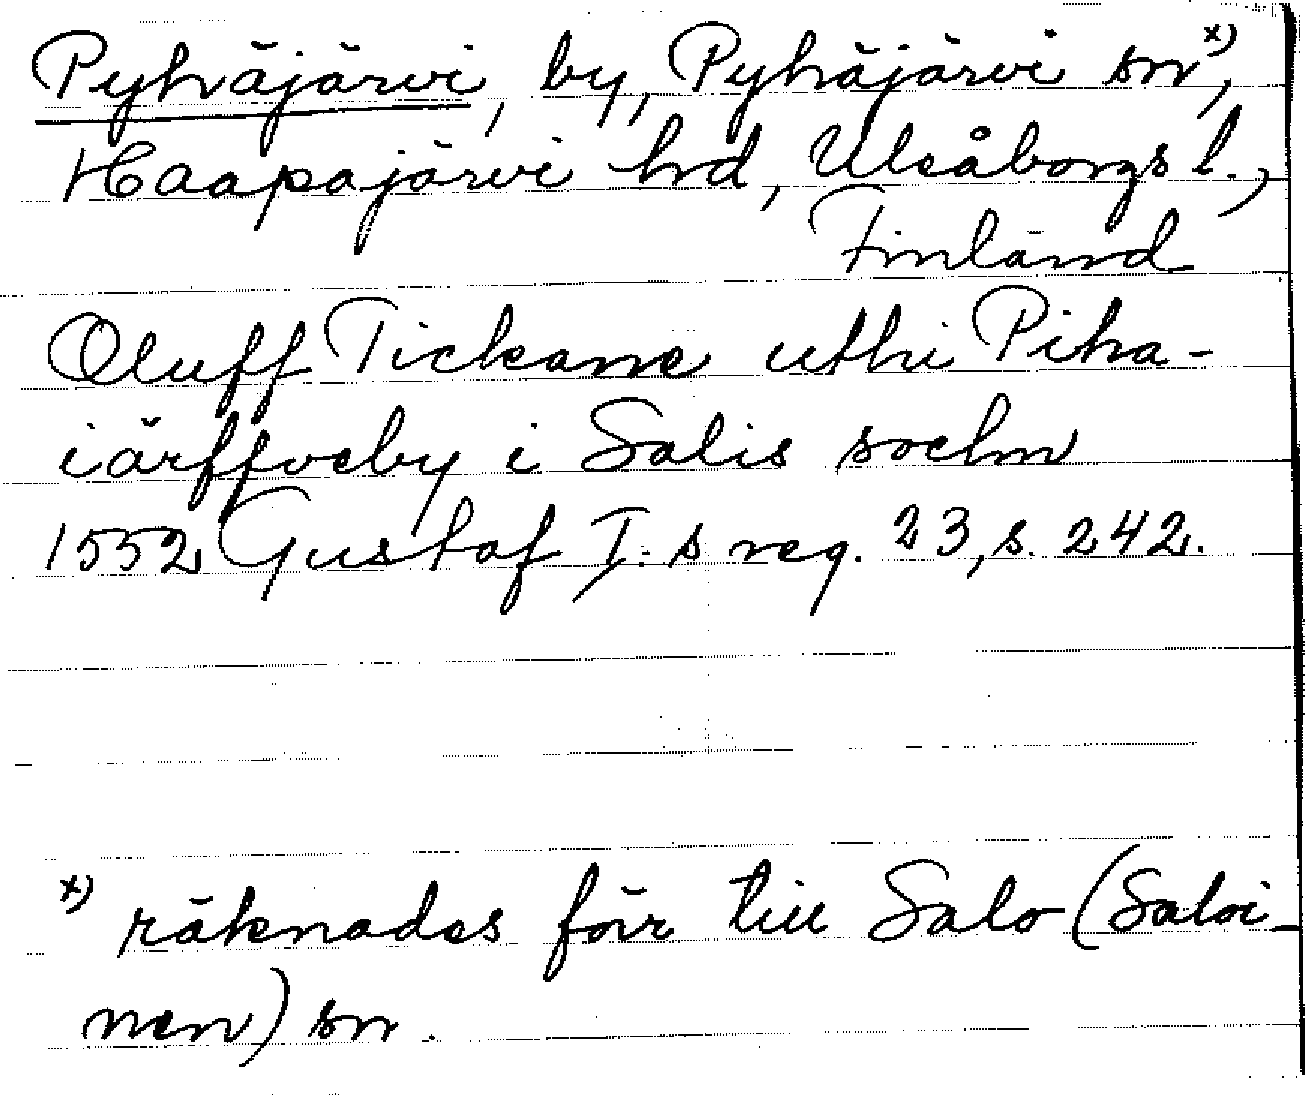 Pyhäjärvi, by, Pyhäjärvi sn x),
Haapajärvi hd, Uleåborgs l.,
Finland
Oluff Tickane uthi Piha-
iärffveby i Salis sochn
1552 Gustaf I:s reg. 23, s. 242.
x) räknades förr till Salo (Saloi-
nen) sn.